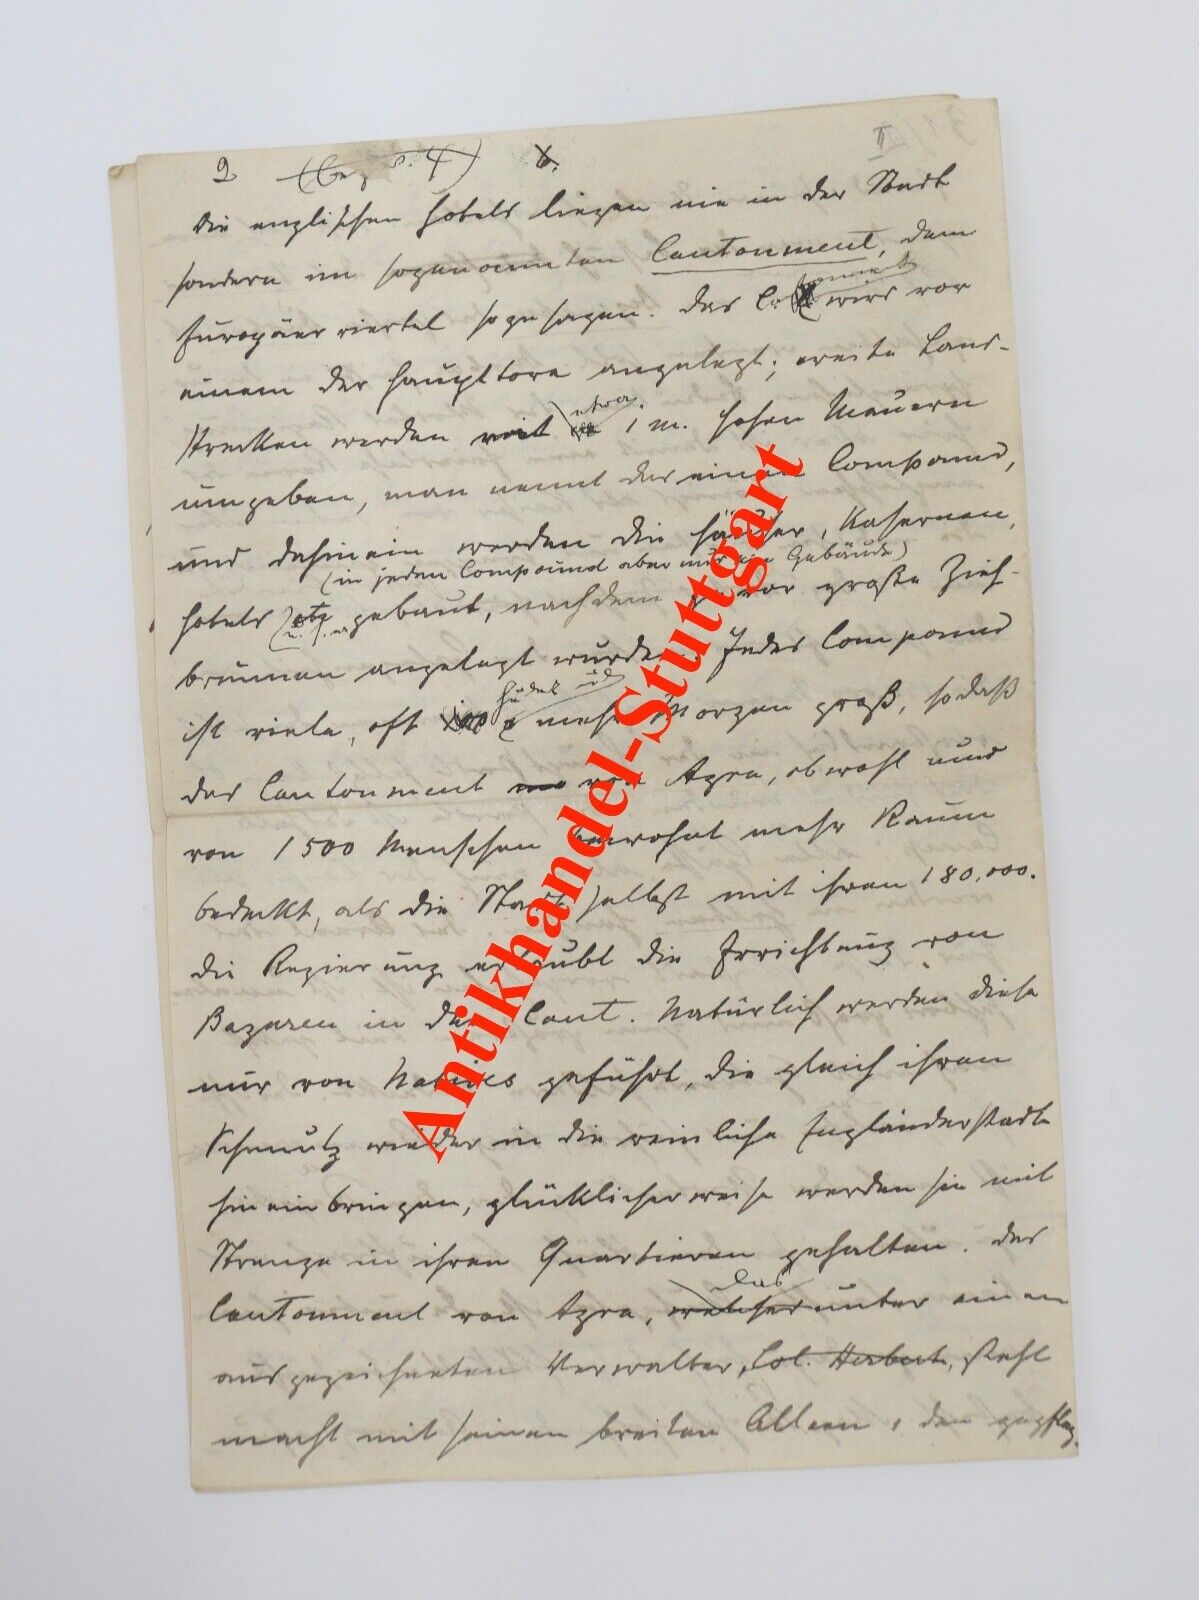 2 (bez S. 4) 6. II
Die englischen Hotels liegen nie in der Stadt
sondern im sogenannten Cantonment, dem
Europäerviertel sozusagen. Das Cantonment wird vor
einem der Haupttore angelegt; weite Land-
strecken werden mit etwa 1 m. hohen Mauern
umgeben, man nennt das einen Compound,
und dahinein werden die Häuser, Kasernen,
(in jeden Compound aber nur ein Gebäude)
Hotels etz gebaut, nachdem zuvor große Zieh-
brunnen angelegt wurden. Jedes Compound
ist viele, oft hundert und mehr Morgen groß, sodaß
das Cantonment von Agra, obwohl nur
von 1500 Menschen bewohnt mehr Raum
bedeckt, als die Stadt selbst mit ihren 180,000.
Die Regierung erlaubt die Errichtung von
Bazaren in den Cant. Natürlich werden diese
nur von Natives geführt, die gleich ihren
Schmutz wieder in die reinliche Engländerstadt
hineinbringen, glücklicherweise werden sie mit
Strenge in ihren Quartieren gehalten. Das
Cantonment von Agra, welches das unter einem
ausgezeichneten Verwalter, Col. Herbert, steht
macht mit seinen breiten Alleen, den gepfleg-
Antikhandel-Stuttgart